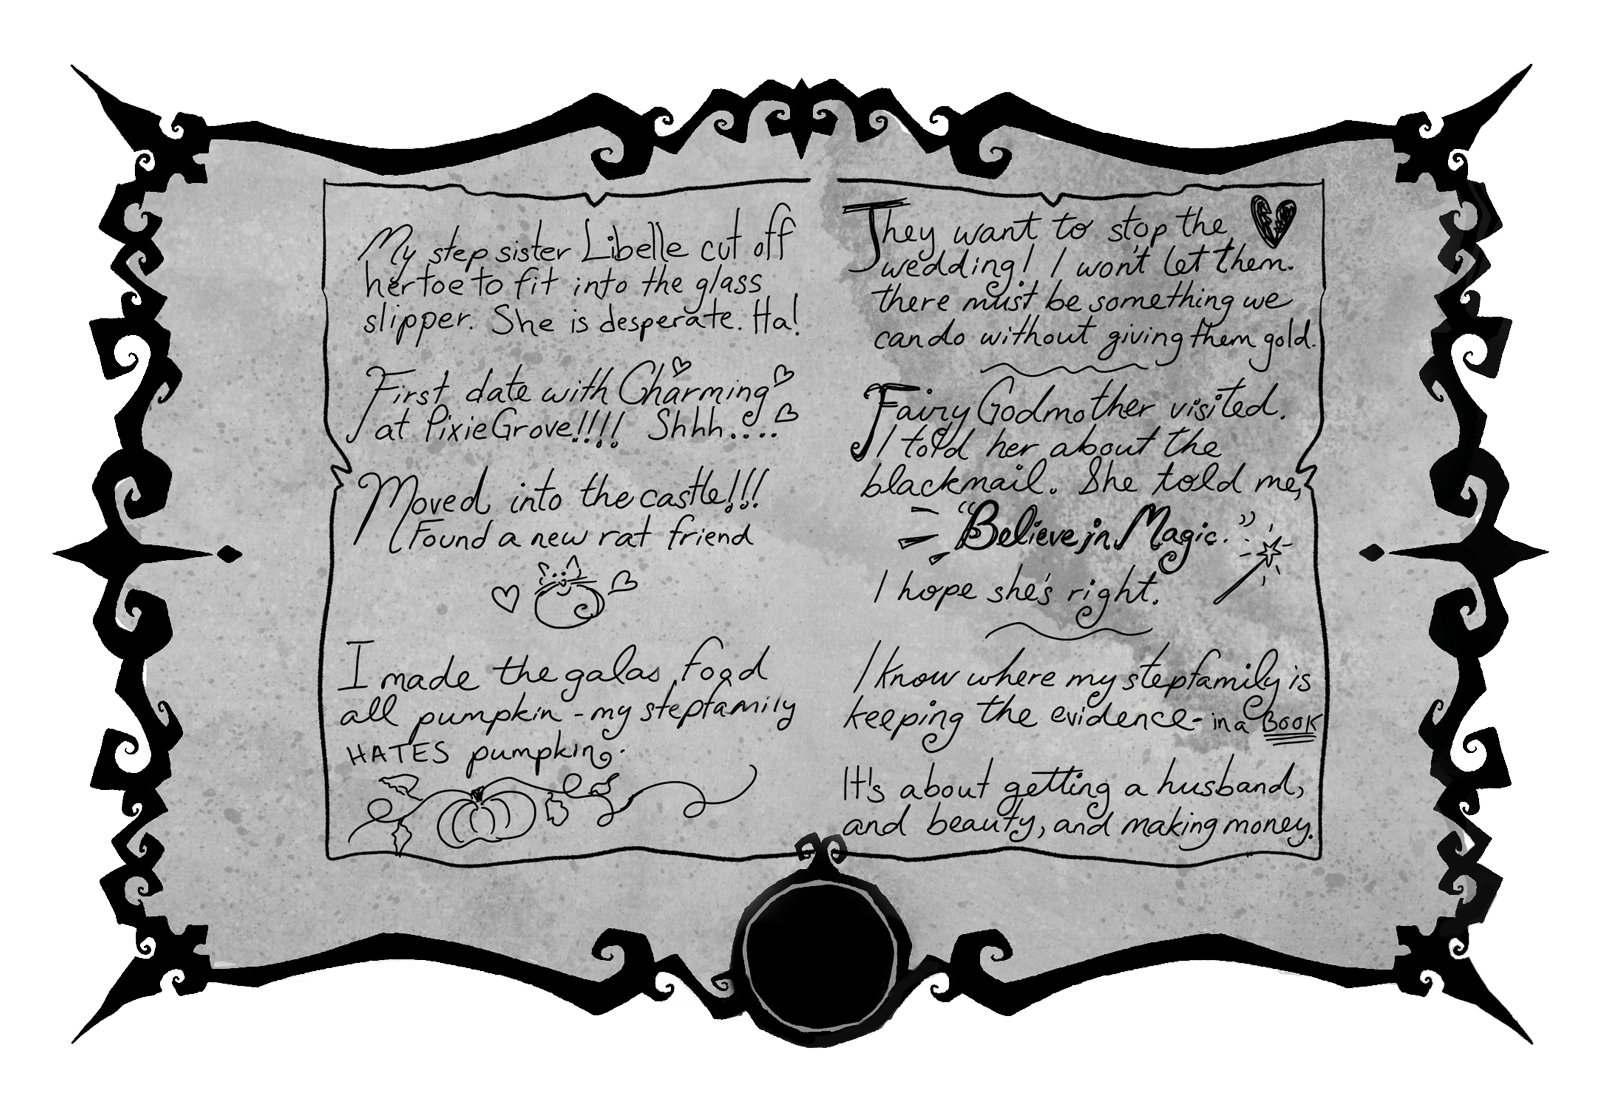 My step sister Libelle cut off
her toe to fit into the glass
slipper. She is desperate. Ha!
First date with Charming
at Pixie Grove!!!! Shhh....
Moved into the castle!!!
Found a new rat friend
I made the galas food
all pumpkin - my stepfamily
HATES pumpkin.
They want to stop the
wedding! I won't let them.
there must be something we
can do without giving them gold.
Fairy Godmother visited.
I told her about the
blackmail. She told me,
"Believe in Magic."
I hope she's right.
I know where my stepfamily is
keeping the evidence - in a BOOK
It's about getting a husband,
and beauty, and making money.